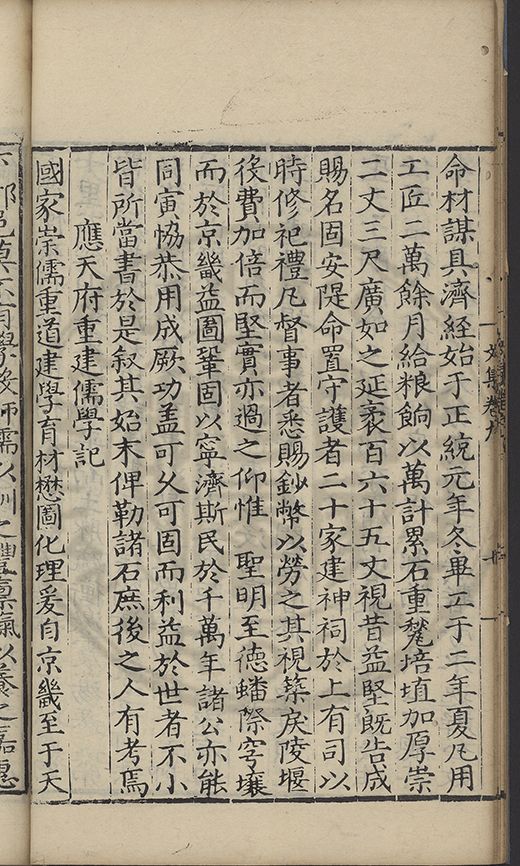 命材謀具濟經始于正統元年冬畢工于二年夏凡用
工匠二萬餘月給粮餉以萬計累石重甃培埴加厚崇
二丈三尺廣如之延袤百六十五丈視昔益堅既告成
賜名固安隄命置守護者二十家建神祠於上有司以
時修祀禮凡督事者悉賜鈔幣以勞之其視築戾陵堰
後費加倍而堅實亦過之仰惟 聖明至德蟠際穹壤
而於京畿益圖鞏固以寧濟斯民於千萬年諸公亦能
同寅恊恭用成厥功盖可乆可固而利益於世者不小
皆所當書於是叙其始末俾勒諸石庶後之人有考焉
應天府重建儒學記
國家崇儒重道建學育材懋圖化理爰自京畿至于天
師儒以訓之豐廪氣以養之嘉惠
文集卷九
十一